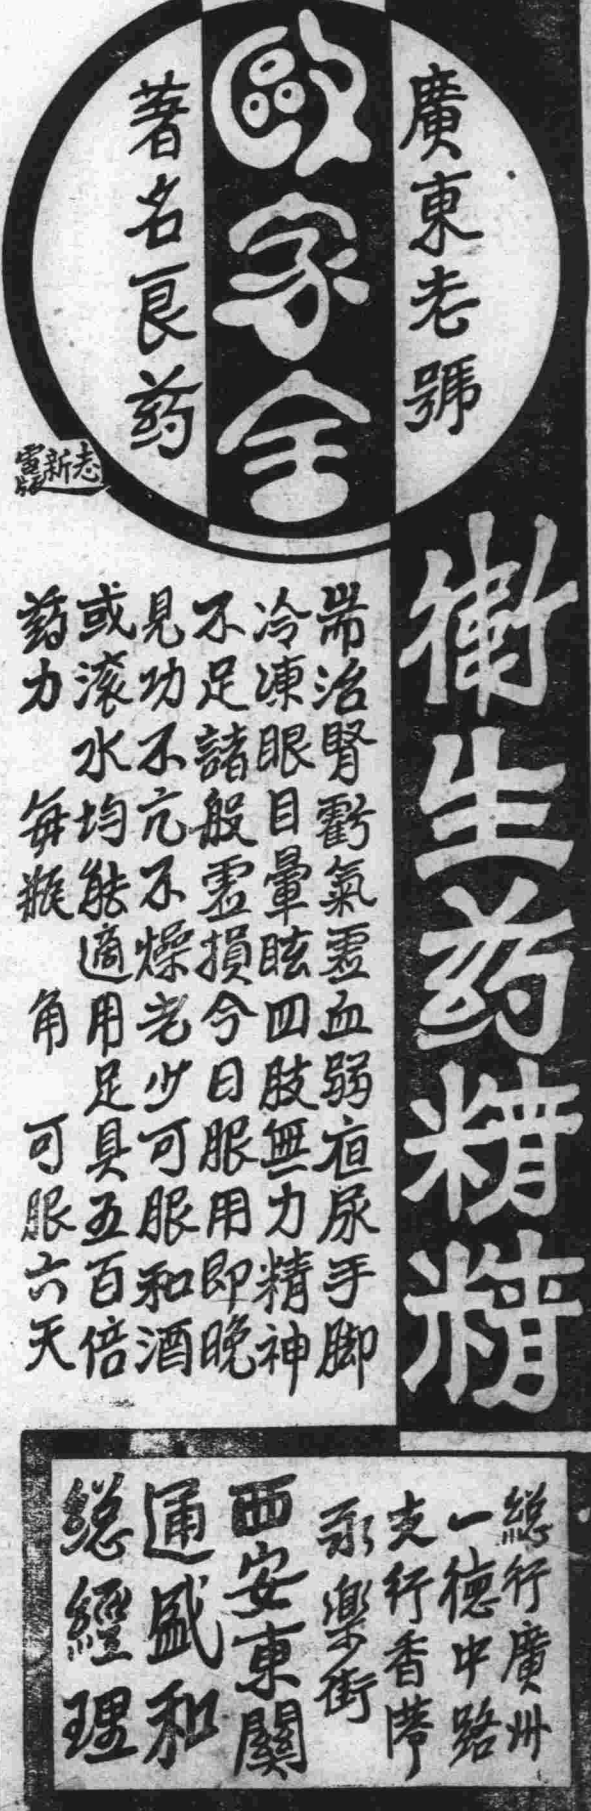 廣東老號
歐家全
著名良药
衛生药精精
耑治腎虧氣虛血弱夜尿手脚
冷凍眼目暈眩四肢無力精神
不足諸般虛損今日服用即晚
見功不亢不燥老少可服和酒
或滚水均能適用足具五百倍
药力 每瓶 角 可服六天
總行廣州
一德中路
支行香港
永樂街
西安東關
通盛和
總經理